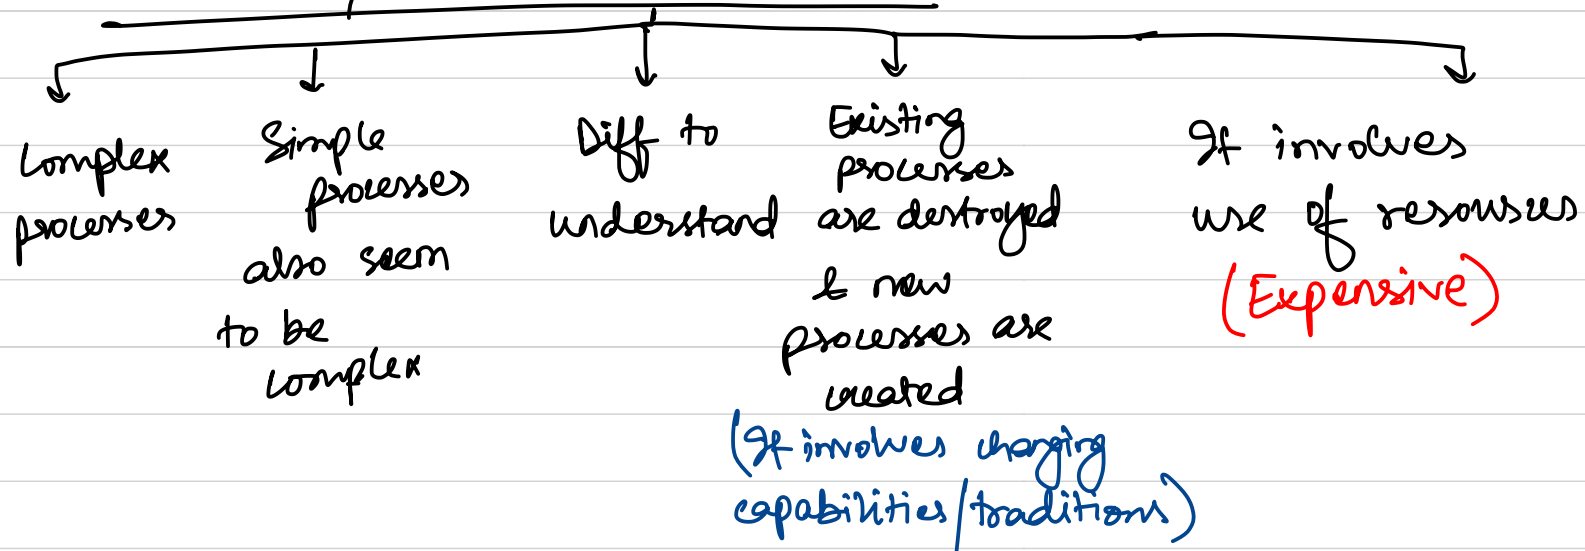 Complex
processes
Simple
processes
also seem
to be
complex
Diff to
understand
Existing
processes
are destroyed
& new
processes are
created
(It involves changing
capabilities/traditions)
It involves
use of resources
(Expensive)